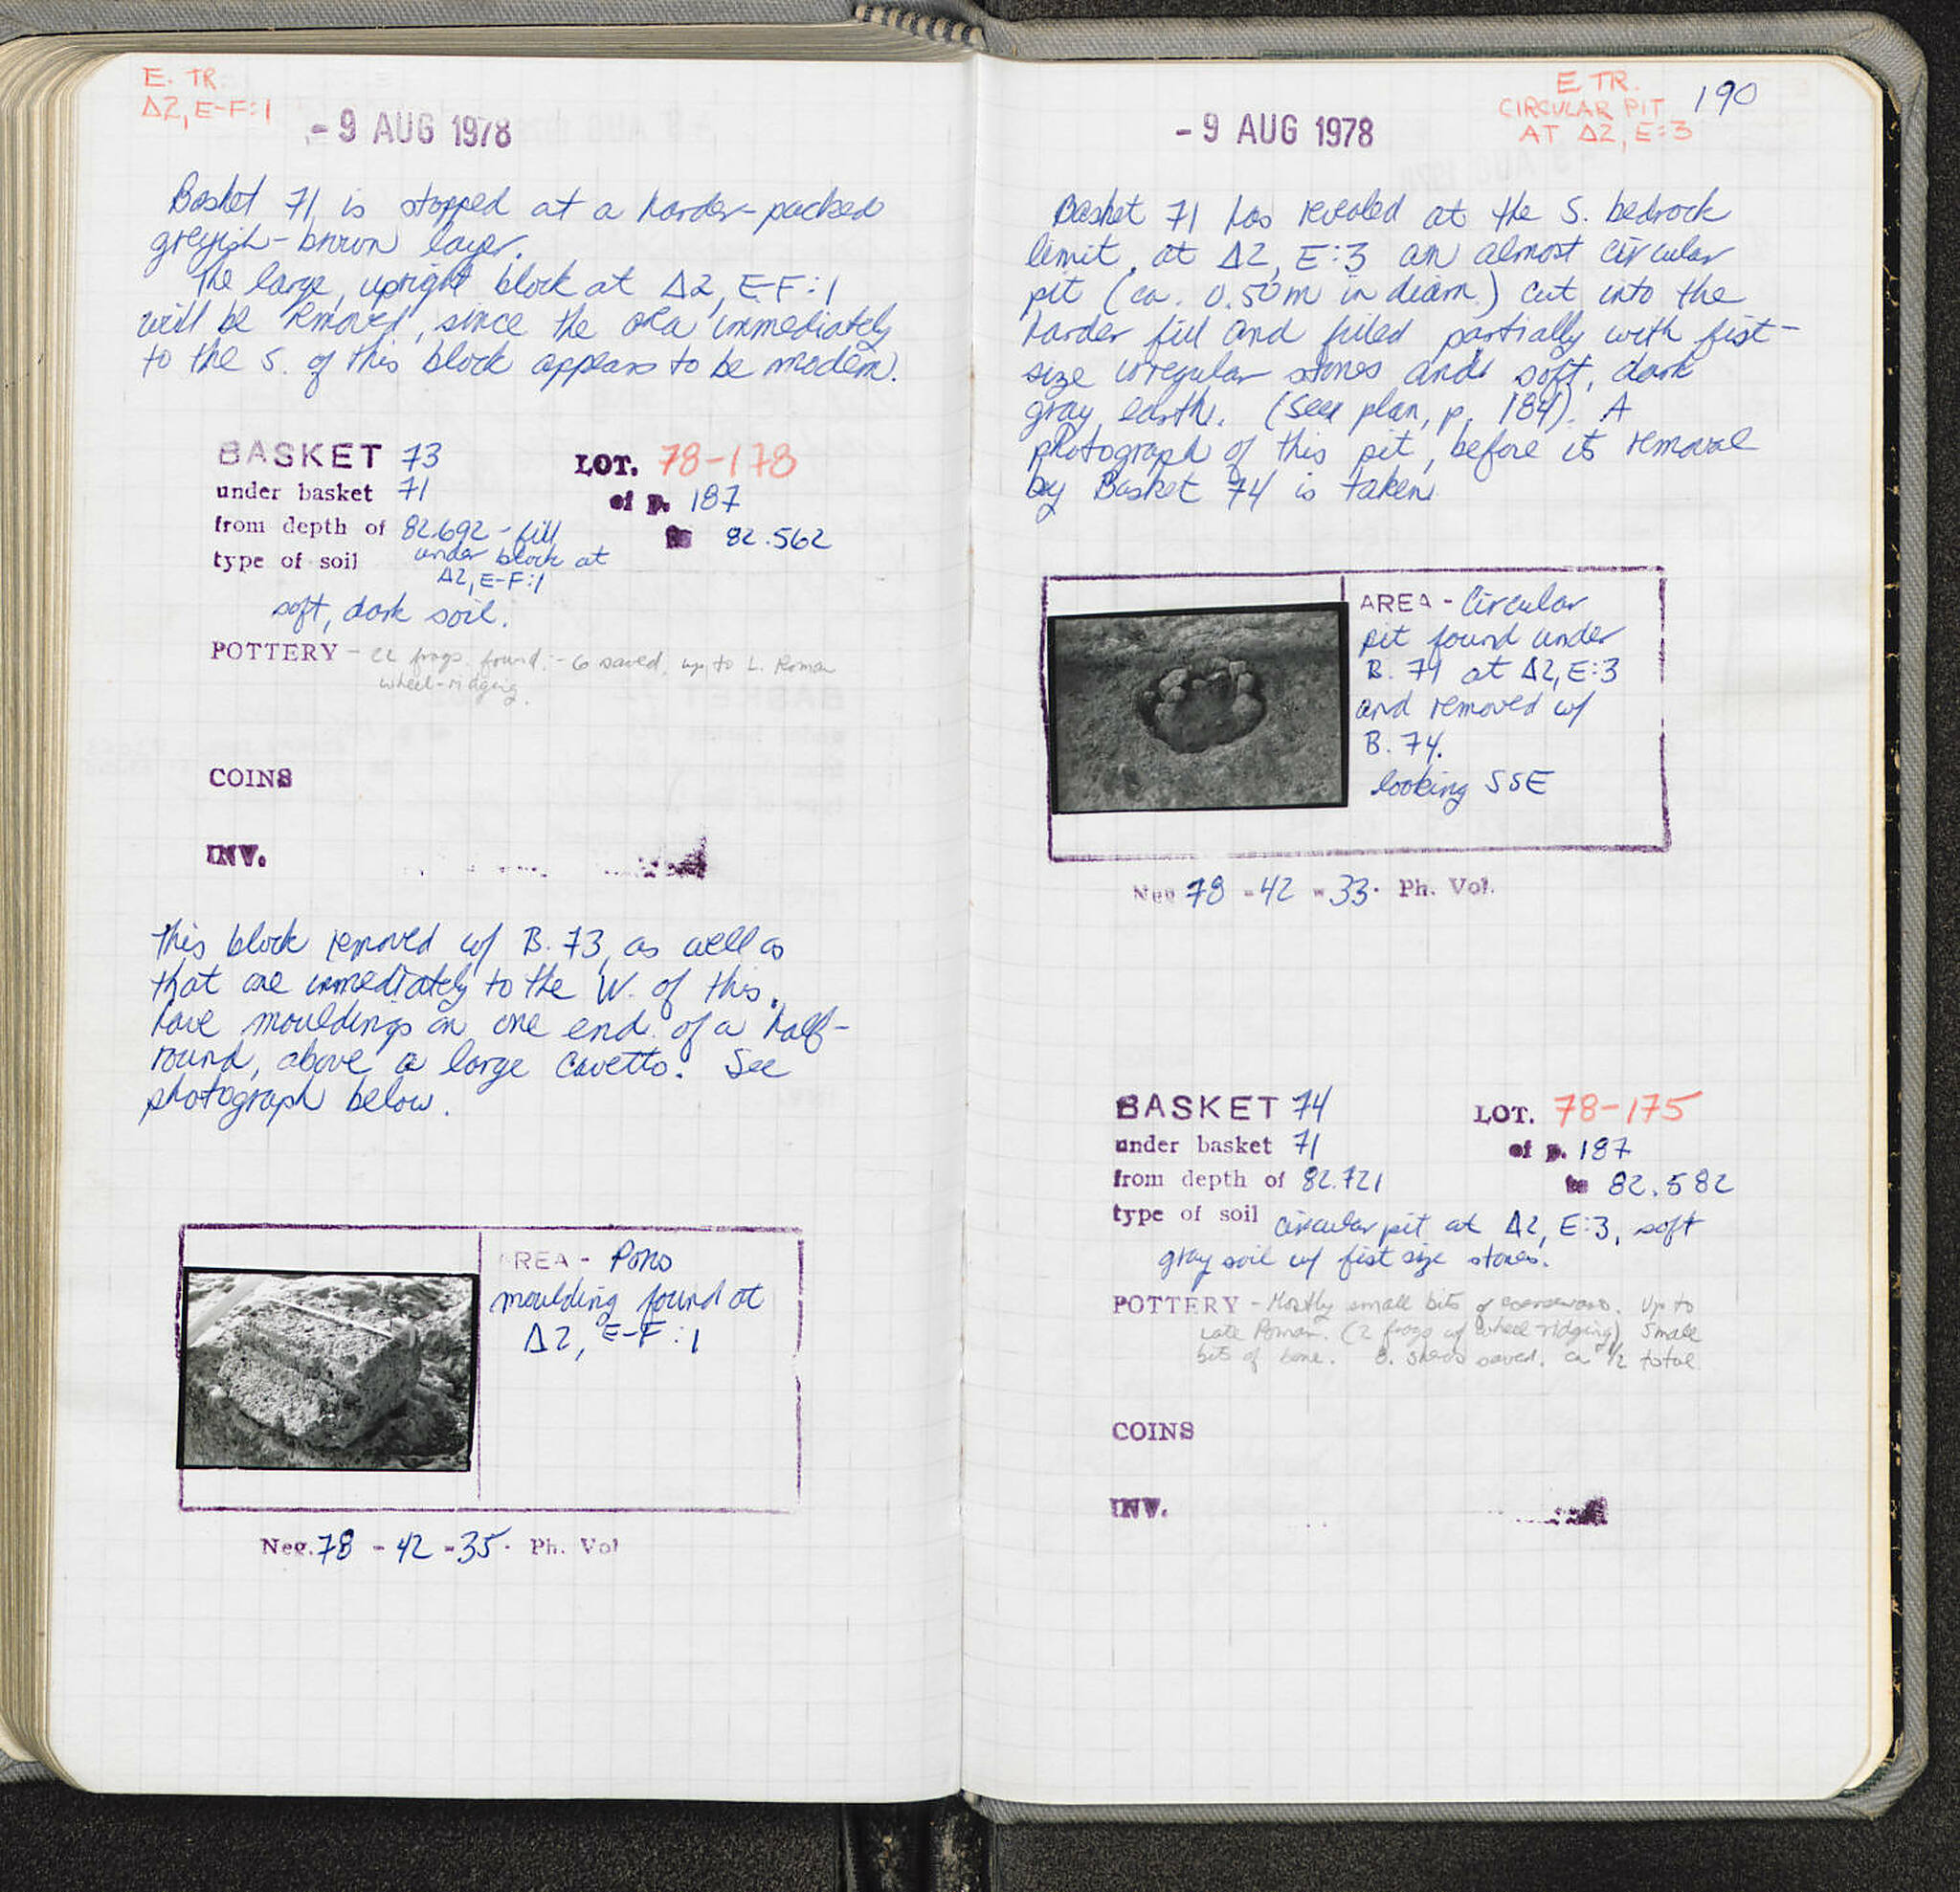 E. TR.
Δ2, E-F:1
- 9 AUG 1978
Basket 71 is stopped at a harder-packed
greyish-brown layer.
The large, upright block at Δ2, E-F:1
will be removed, since the area immediately
to the S. of this block appears to be modern.
BASKET 73
LOT. 78-178
under basket 71
of p. 187
from depth of 82.692 - fill
82.562
under block at
type of soil
Δ2, E-F:1
soft, dark soil.
POTTERY - 22 frags. found. - 6 saved, up to L. Roman
wheel-ridging.
COINS
INV.
This block removed w/ B. 73, as well as
that one immediately to the W. of this,
have mouldings on one end of a half-
round, above a large cavetto. See
photograph below.
AREA - Poros
moulding found at
Δ2, E-F:1
Neg. 78 - 42 - 35. Ph. Vol
E TR.
CIRCULAR PIT
AT Δ2, E:3
190
- 9 AUG 1978
Basket 71 has revealed at the S. bedrock
limit, at Δ2, E:3 an almost circular
pit (ca. 0.50m in diam.) cut into the
harder fill and filled partially with fist-
size irregular stones and soft, dark
gray earth. (see plan, p. 184). A
photograph of this pit, before its removal
by Basket 74 is taken
AREA - Circular
pit found under
B. 71 at Δ2, E:3
and removed w/
B. 74.
looking SSE
Neg 78 - 42 - 33. Ph. Vol.
BASKET 74
LOT. 78-175
under basket 71
of p. 187
from depth of 82.721
82.582
type of soil circular pit at Δ2, E:3, soft
gray soil w/ fist size stones.
POTTERY - Mostly small bits of coarseware. Up to
Late Roman. (2 frags w/ wheel ridging) Small
bits of bone. 8. sherds saved. ca 1/2 total
COINS
INV.